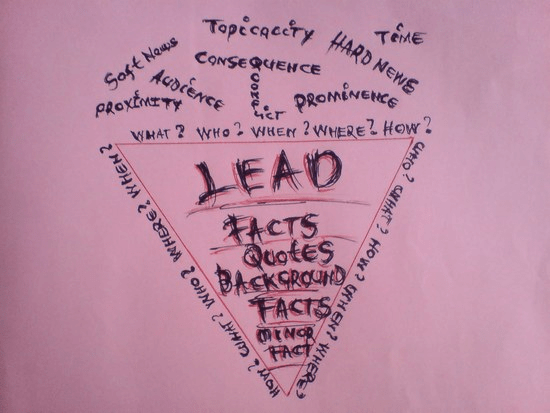 TopicaLiTY
TiME
Soft News
HARD NEWS
CONSEQUENCE
AUDiENCE
CONFLiCT
PROXiMiTY
PROMiNENCE
WHAT? WHO? WHEN? WHERE? HOW?
LEAD
FACTS
QuotES
BACKGROUND
FACTS
MiNOR
FACT
HOW? WHAT? WHO? WHERE? WHEN?
WHO? WHAT? HOW? WHEN? WHERE?